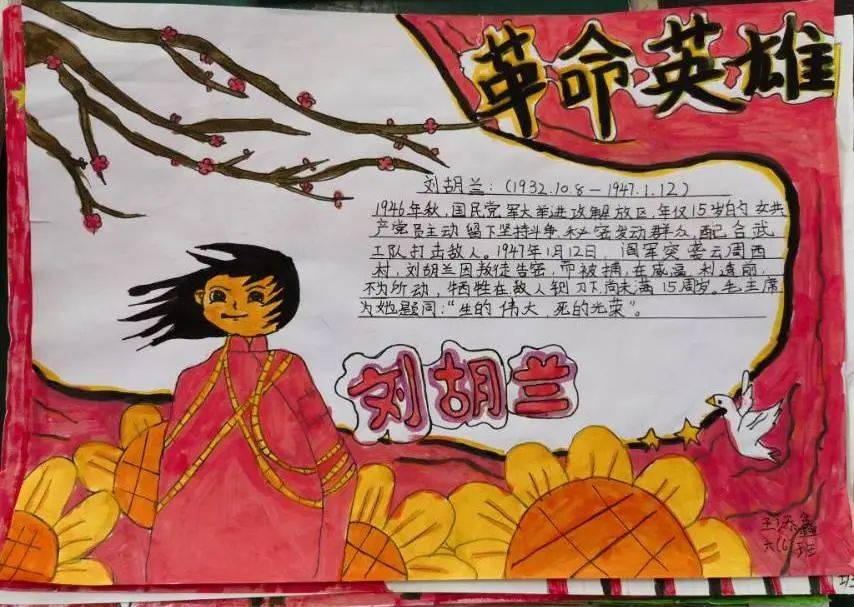 革命英雄
刘胡兰：(1932.10.8—1947.1.12)
1946年秋，国民党军大举进攻解放区，年仅15岁的女共
产党员主动留下坚持斗争，秘密发动群众，配合武
工队打击敌人。1947年1月12日，阎军突袭云周西
村，刘胡兰因叛徒告密，而被捕，在威逼利
不为所动，牺牲在敌人铡刀下尚未满15周岁。毛主席
为她题词："生的伟大 死的光荣"。
刘胡兰
王 鑫
六 班
班